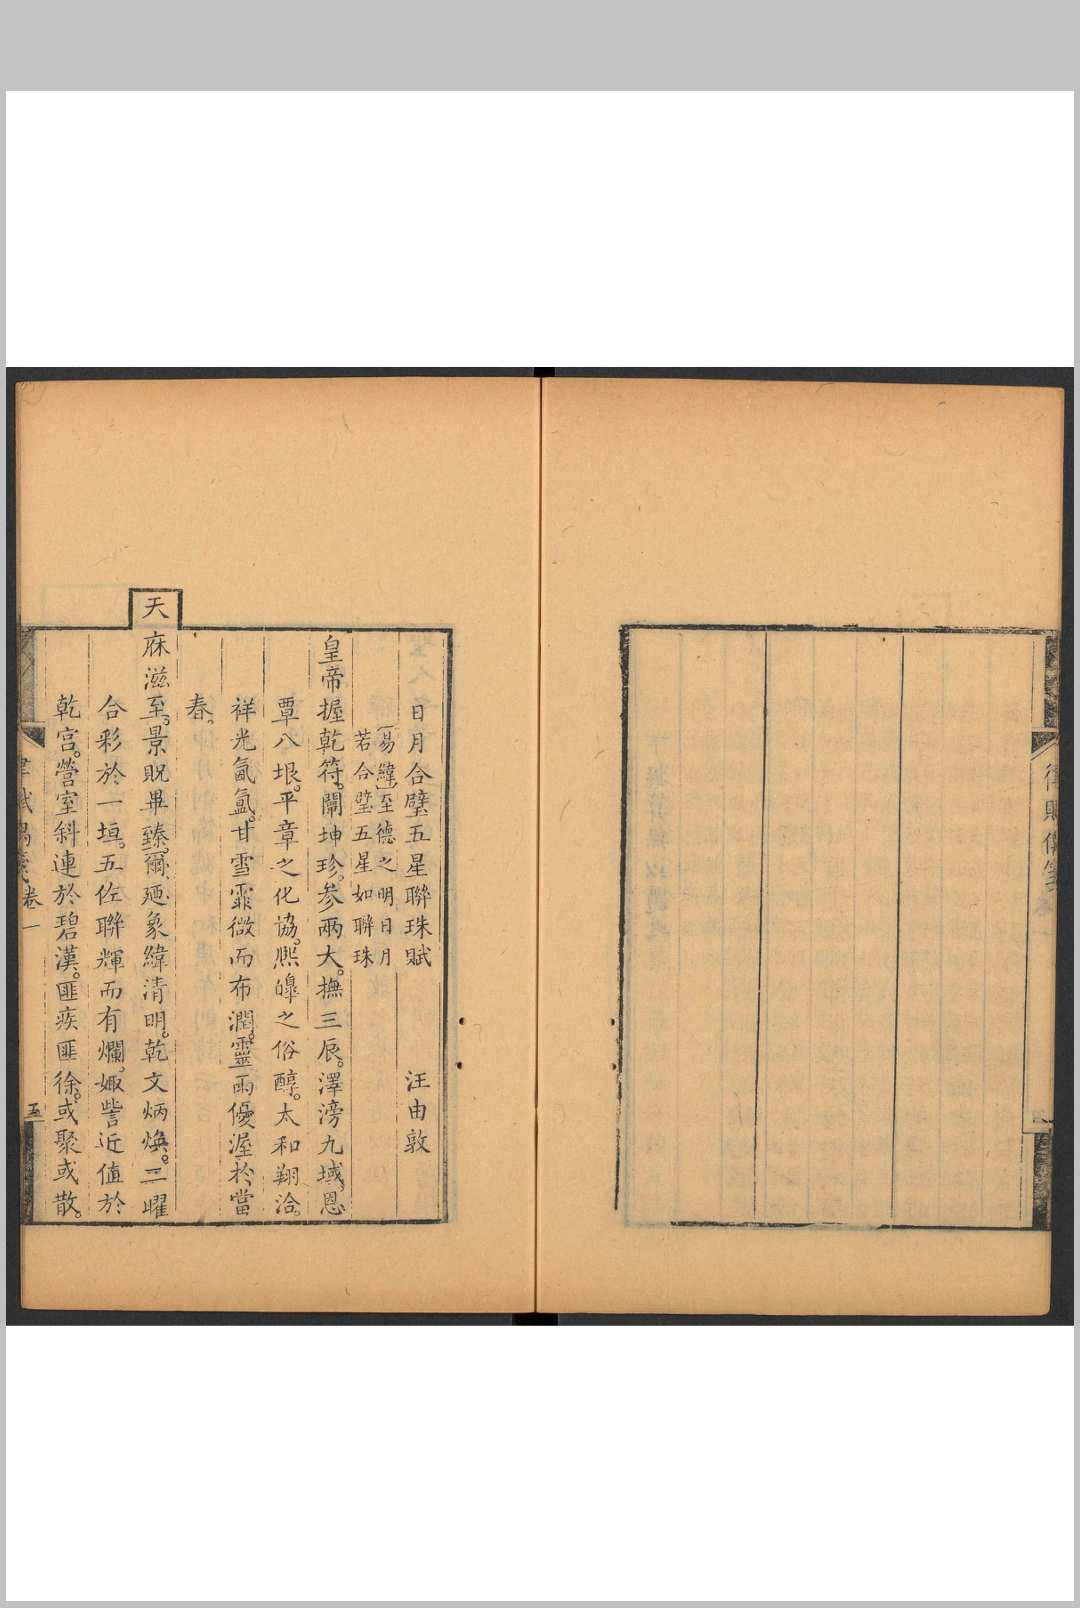 日月合璧五星聯珠賦 汪由敦
易緯至德之明日月
若合璧五星如聯珠
皇帝握乾符。闡坤珍。參兩大。撫三辰。澤滂九域。恩
覃八垠。平章之化協。熙皞之俗醇。太和翔洽。
祥光氤氳。甘雪霏微而布潤。靈雨優渥於當
春。
天庥滋至。景貺畢臻。爾廼象緯清明。乾文炳煥。三曜
合彩於一垣。五佐聯輝而有爛。娵訾近值於
乾宮。營室斜連於碧漢。匪疾匪徐。或聚或散。
律賦 卷一
五